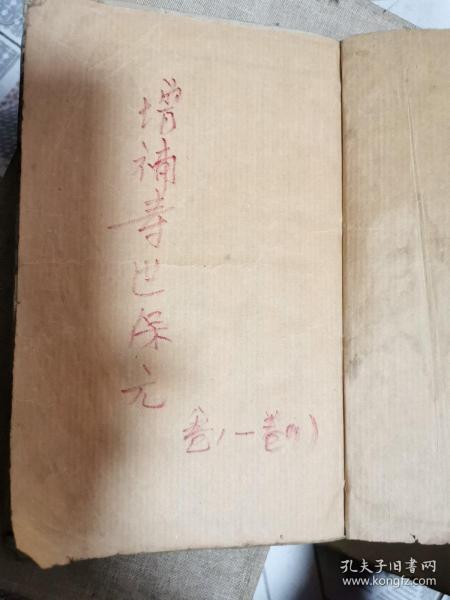 增補寿世保元
卷1一卷四
孔夫子旧书网
www.kongfz.com